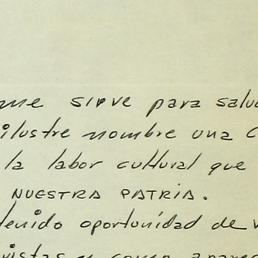 me sirve para salud
ilustre nombre una c
la labor cultural que
NUESTRA PATRIA.
tenido oportunidad de v
vistas y como apare